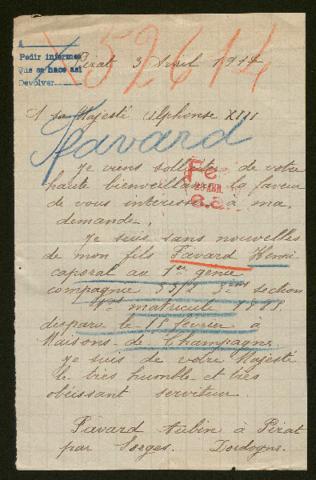 A
Pedir informes
Que se hace así
Devolver
52614
Pirat 3 Avril 1917
A sa Majesté Alphonse XIII
Favard
Je viens solliciter de votre
haute bienveillance la faveur
de vous intéresser à ma
demande.
Je suis sans nouvelles
de mon fils Favard Henri
caporal au 1er génie
compagnie section
Nº matricule
disparu le février à
Maisons-de Champagne
Je suis de votre Majesté
le très humble et très
obéissant serviteur.
Favard Aubin à Pirat
par Sorges. Dordogne.